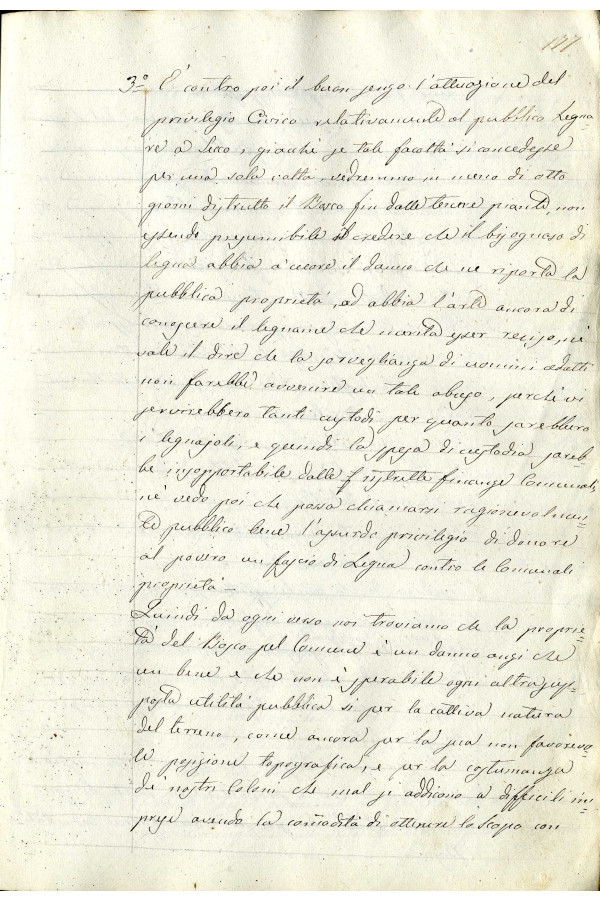 177
3º E' contro poi il buon senso l'attuazione del
privilegio Civico relativamente al pubblico Legna=
re a secco, giacchè se tale facoltà si concedesse
per una sola volta, vedremmo in meno di otto
giorni distrutto il Bosco fin dalle tenere piante, non
essendo presumibile il credere che il bisognoso di
legna abbia a cuore il danno che ne riporta la
pubblica proprietà, ed abbia l'arte ancora di
conoscere il legname che merita esser reciso, nè
vale il dire che la sorveglianza di uomini adatti
non farebbe avvenire un tale abuso, perchè vi
servirebbero tanti custodi per quanto sarebbero
i legnajoli, e quindi la spesa di custodia sareb=
be insopportabile dalle ristrette finanze Comunali,
nè vedo poi che possa chiamarsi ragionevolmen=
te pubblico bene l'assurdo privilegio di donare
al povero un fascio di Legna contro le Comunali
proprietà —
Quindi da ogni verso noi troviamo che la proprie=
tà del Bosco pel Comune è un danno anzi che
un bene e che non è sperabile ogni altra sup=
posta utilità pubblica si per la cattiva natura
del terreno, come ancora per la sua non favorevo=
le posizione topografica, e per la costumanza
de nostri Coloni che mal si addicono a difficili im=
prese avendo la comodità di ottenere lo scopo con